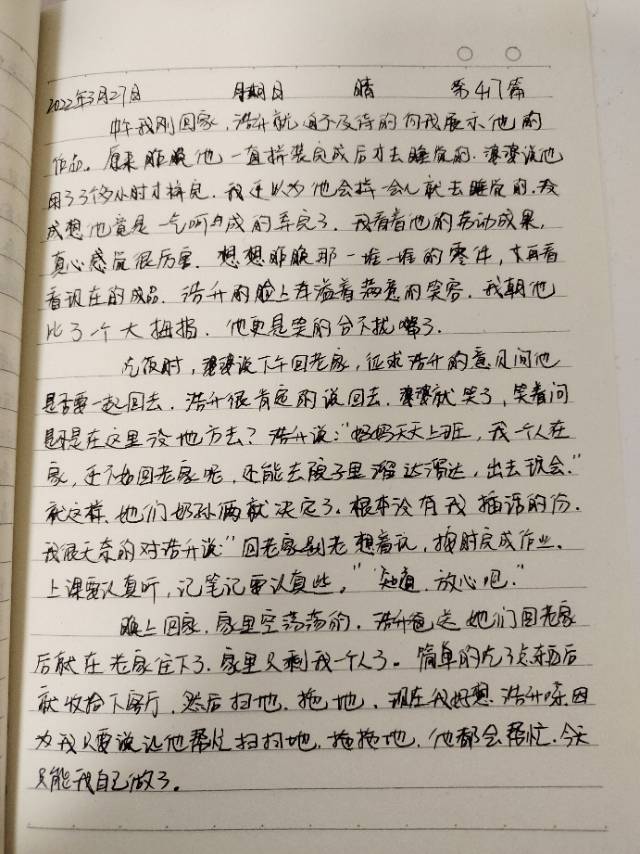 2022年3月27日 星期日 晴 第417篇
中午我刚回家,浩升就迫不及待的向我展示他的
作品。原来昨晚他一直拼装完成后才去睡觉的.婆婆说他
用了3个多小时才拼完.我还以为他会拼一会儿就去睡觉的.没
成想他竟是一气呵成的弄完了.我看着他的劳动成果,
真心感觉很厉害.想想昨晚那一堆一堆的零件,在看
看现在的成品.浩升的脸上洋溢着满意的笑容.我朝他
比了个大拇指.他更是笑的合不拢嘴了.
吃饭时,婆婆说下午回老家,征求浩升的意见问他
是否要一起回去.浩升很肯定的说回去.婆婆就笑了,笑着问
是不是在这里没地方去?浩升说:“妈妈天天上班,我一个人在
家,还不如回老家呢,还能去院子里溜达溜达,出去玩会.”
就这样.她们奶孙俩就决定了.根本没有我插话的份.
我很无奈的对浩升说:“回老家别老想着玩,按时完成作业.
上课要认真听,记笔记要认真些。”“知道.放心吧.”
晚上回家.家里空荡荡的.浩升爸送她们回老家
后就在老家住下了.家里只剩我一个人了。简单的吃了点东西后
就收拾下客厅.然后扫地.拖地.现在我好想浩升呀.因
为我只要说让他帮忙扫扫地.拖拖地.他都会帮忙.今天
只能我自己做了。